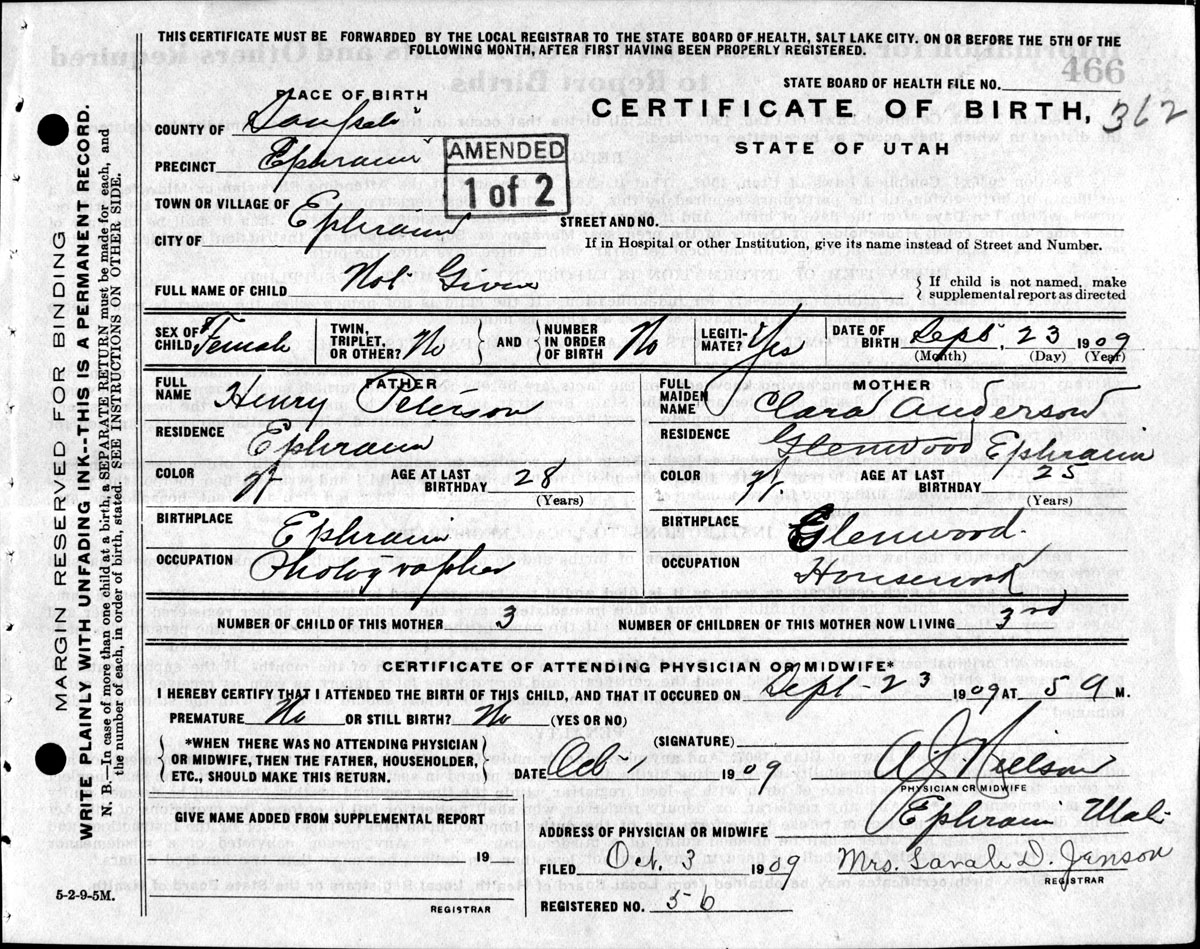 THIS CERTIFICATE MUST BE FORWARDED BY THE LOCAL REGISTRAR TO THE STATE BOARD OF HEALTH, SALT LAKE CITY, ON OR BEFORE THE 5TH OF THE
FOLLOWING MONTH, AFTER FIRST HAVING BEEN PROPERLY REGISTERED.
466
STATE BOARD OF HEALTH FILE NO.
PLACE OF BIRTH
CERTIFICATE OF BIRTH, 362
STATE OF UTAH
COUNTY OF Sanpete
PRECINCT Ephraim
AMENDED
1 of 2
TOWN OR VILLAGE OF Ephraim
STREET AND NO.
CITY OF
If in Hospital or other Institution, give its name instead of Street and Number.
FULL NAME OF CHILD Not Given
If child is not named, make
supplemental report as directed
SEX OF CHILD Female
TWIN, TRIPLET, OR OTHER? No
AND
NUMBER IN ORDER OF BIRTH No
LEGITI-MATE? Yes
DATE OF BIRTH Sept. 23 1909
(Month) (Day) (Year)
FATHER
FULL NAME Henry Peterson
RESIDENCE Ephraim
COLOR W AGE AT LAST BIRTHDAY 28
(Years)
BIRTHPLACE Ephraim
OCCUPATION Photographer
MOTHER
FULL MAIDEN NAME Clara Anderson
RESIDENCE Glenwood Ephraim
COLOR W AGE AT LAST BIRTHDAY 25
(Years)
BIRTHPLACE Glenwood
OCCUPATION Housework
NUMBER OF CHILD OF THIS MOTHER 3 NUMBER OF CHILDREN OF THIS MOTHER NOW LIVING 3rd
CERTIFICATE OF ATTENDING PHYSICIAN OR MIDWIFE*
I HEREBY CERTIFY THAT I ATTENDED THE BIRTH OF THIS CHILD, AND THAT IT OCCURED ON Sept-23 1909 AT 5 a M.
PREMATURE No OR STILL BIRTH? No (YES OR NO)
*WHEN THERE WAS NO ATTENDING PHYSICIAN
OR MIDWIFE, THEN THE FATHER, HOUSEHOLDER,
ETC., SHOULD MAKE THIS RETURN.
(SIGNATURE) A J Nielson
DATE Oct 1909
PHYSICIAN OR MIDWIFE
GIVE NAME ADDED FROM SUPPLEMENTAL REPORT
19
REGISTRAR
ADDRESS OF PHYSICIAN OR MIDWIFE Ephraim Utah
FILED Oct. 3 1909 Mrs. Sarah D. Jenson
REGISTRAR
REGISTERED NO. 56
5-2-9-5M.
MARGIN RESERVED FOR BINDING
WRITE PLAINLY WITH UNFADING INK--THIS IS A PERMANENT RECORD.
N. B.—In case of more than one child at a birth, a SEPARATE RETURN must be made for each, and
the number of each, in order of birth, stated. SEE INSTRUCTIONS ON OTHER SIDE.